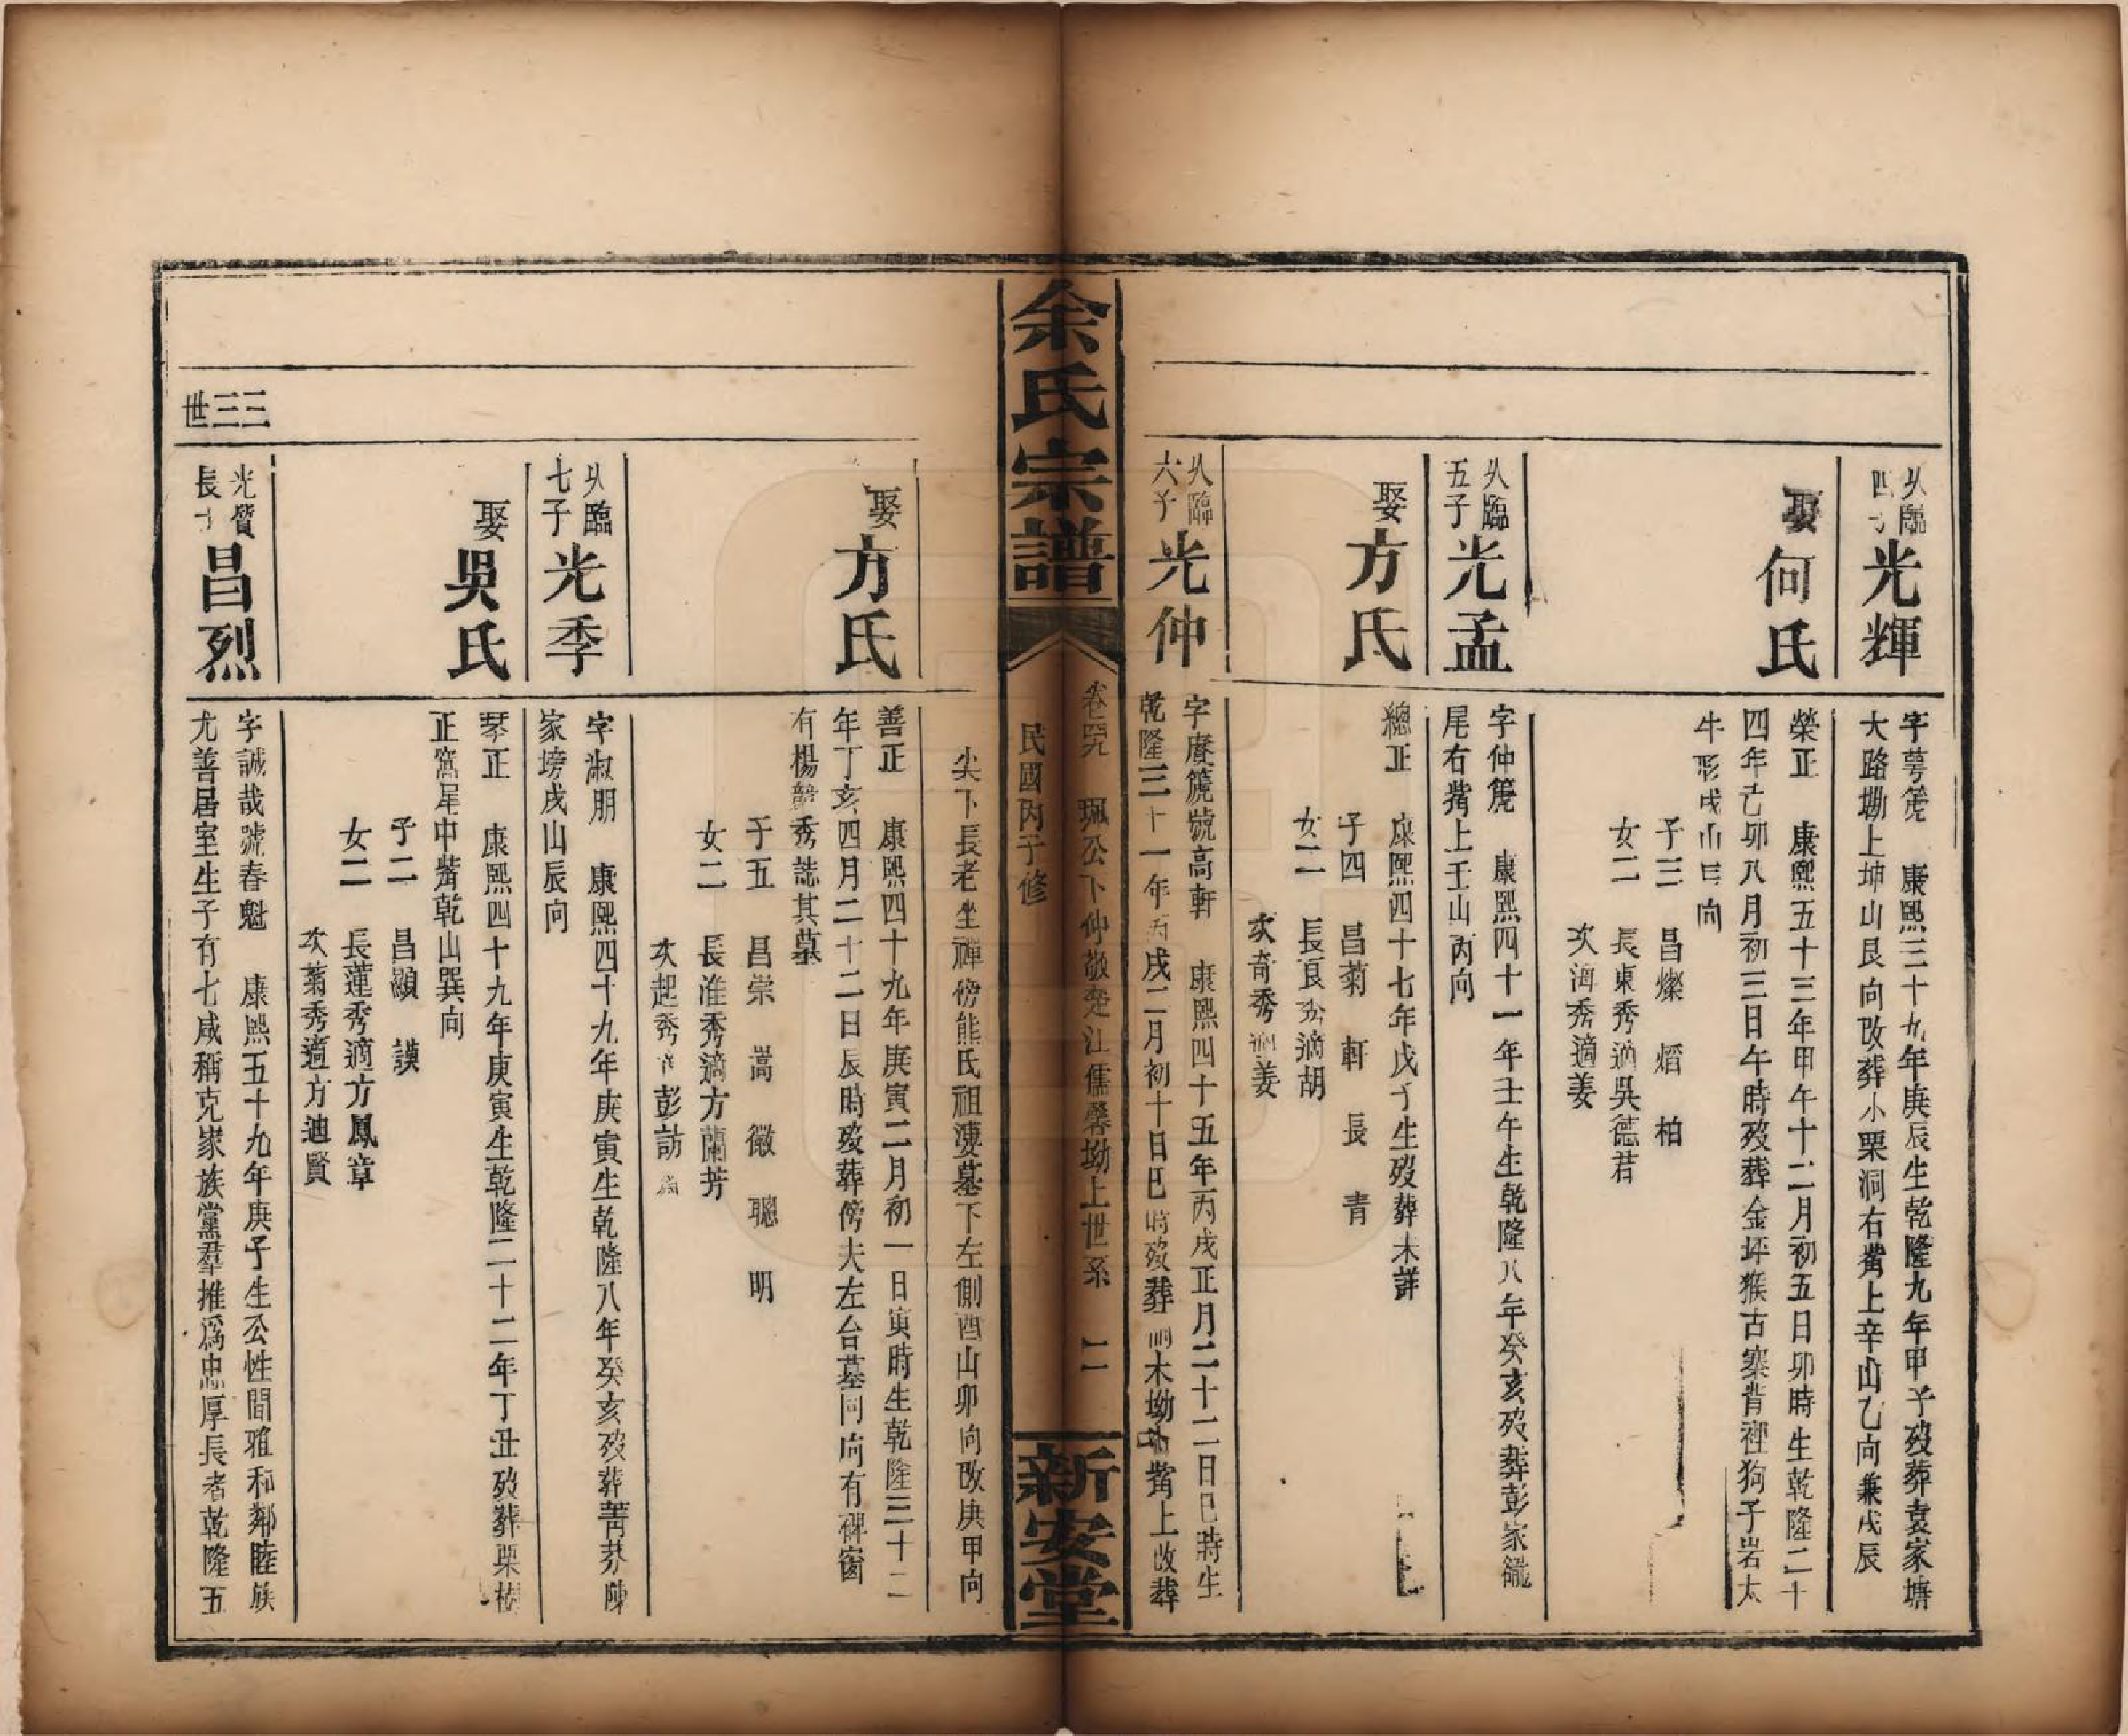 乆臨
四子
光輝
字萼箎　康熙三十九年庚辰生乾隆九年甲子歿葬袁家塘
大路坳上坤山艮向改葬小栗洞右嘴上辛山乙向兼戌辰
娶
何氏
榮正　康熙五十三年甲午十二月初五日卯時生乾隆二十
四年己卯八月初三日午時歿葬金坪猴古寨背裡狗子岩太
牛形戌山向
子三　昌燦　熠　柏
女二　長東秀適吳德君
次海秀適姜
乆臨
五子
光孟
字仲箎　康熙四十一年壬午生乾隆八年癸亥歿葬彭家
尾右嘴上壬山丙向
娶
方氏
總正　康熙四十七年戊子生歿葬未詳
子四　昌菊　軒　長　青
女二　長良秀適胡
次奇秀適姜
乆臨
六子
光仲
字賡箎號高軒　康熙四十五年丙戌正月二十二日巳時生
乾隆三十一年丙戌二月初十日巳時歿葬木坳嘴上改葬
余氏宗譜
卷　珮公下仲敬楚江儒馨坳上世系　二
民國丙子修
新安堂
尖下長老坐禪傍熊氏祖妻墓下左側酉山卯向改庚甲向
娶
方氏
善正　康熙四十九年庚寅二月初一日寅時生乾隆三十二
年丁亥四月二十二日辰時歿葬傍夫左台墓同向有碑窗
有楊韶秀誌其墓
子五　昌崇　嵩　徽　聰　明
女二　長淮秀適方蘭芳
次起秀適彭訪
乆臨
七子
光季
字淑朋　康熙四十九年庚寅生乾隆八年癸亥歿葬菁莽陳
家塝戌山辰向
娶
吳氏
琴正　康熙四十九年庚寅生乾隆二十二年丁丑歿葬栗樹
正窩星中嘴乾山巽向
子二　昌顯　謨
女二　長蓮秀適方鳳章
次菊秀適方迪賢
三三世
光賛
長子
昌烈
字誠哉號春魁　康熙五十九年庚子生公性閒雅和鄰睦族
尤善居室生子有七咸稱克家族黨羣推爲忠厚長者乾隆五